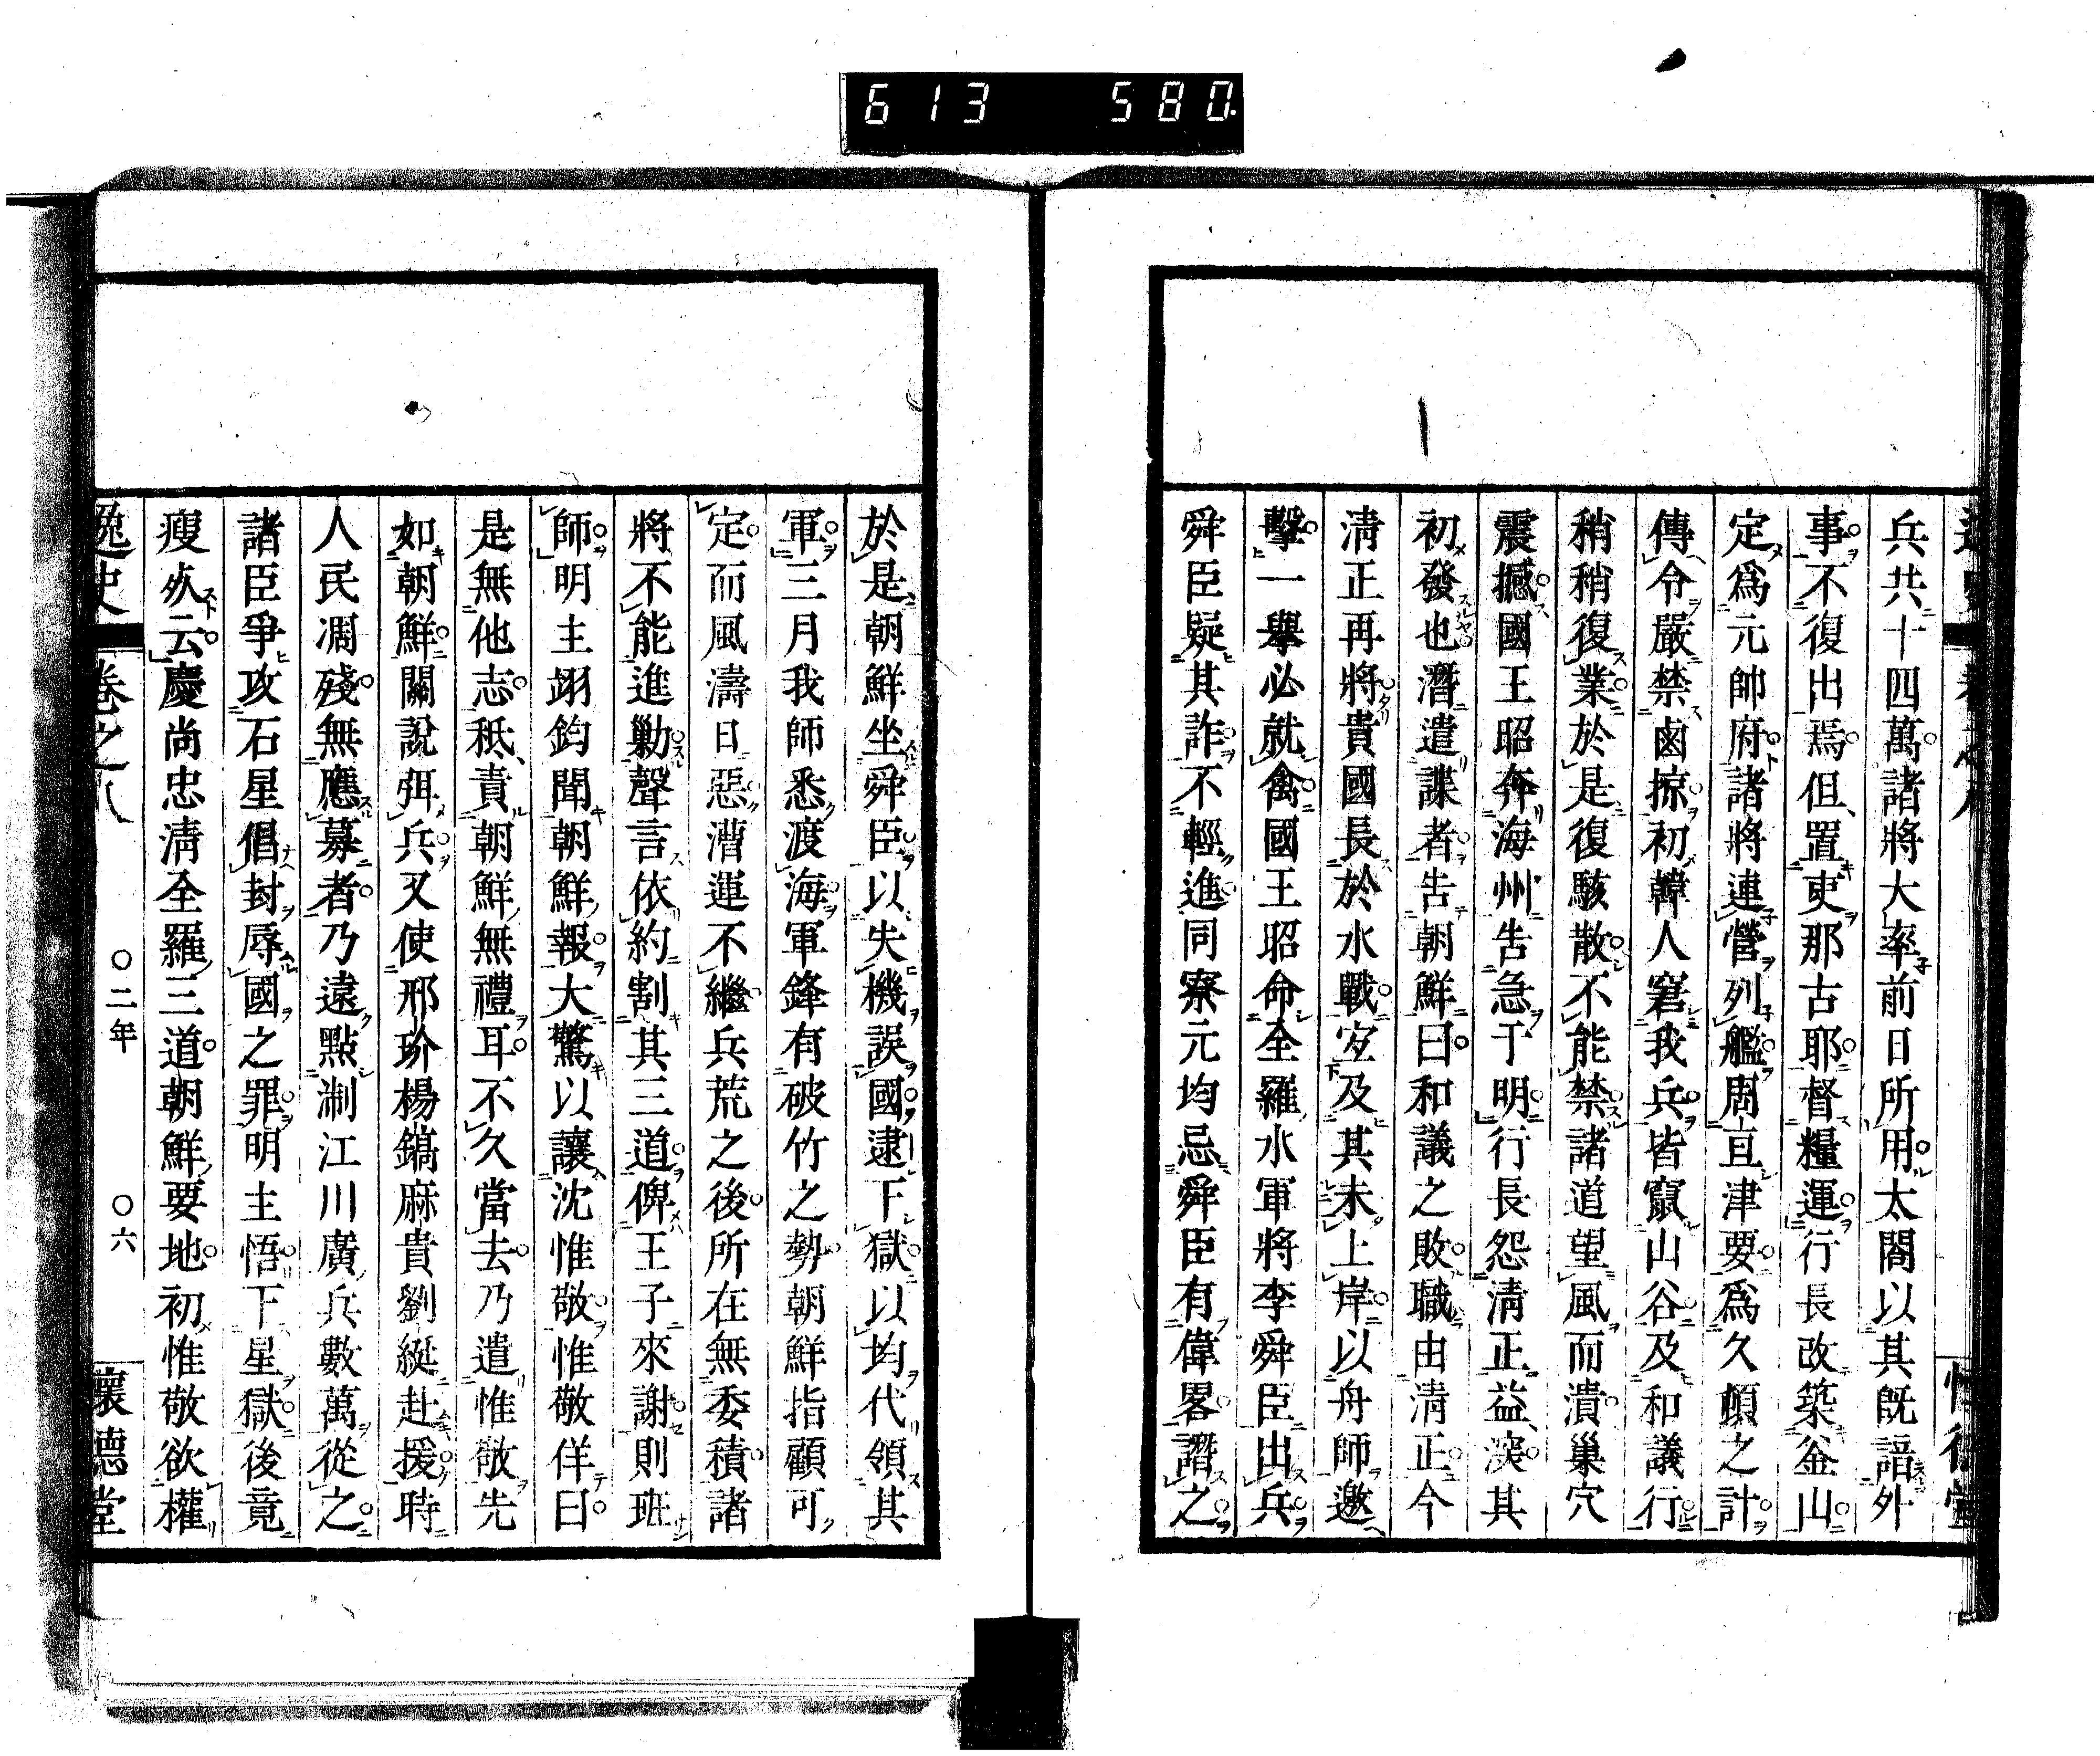 613 580
兵共十四萬諸將大率前日所用太閤以其既諳外
事不復出焉但置吏那古耶督糧運行長改築釜山
定爲元帥府諸將連營列艦周亘津要爲久頓之計
傳令嚴禁鹵掠初韓人窘我兵皆竄山谷及和議行
稍稍復業於是復駭散不能禁諸道望風而潰巢穴
震撼國王昭奔海州告急于明行長怨淸正益深其
初發也潛遣諜者告朝鮮曰和議之敗職由淸正今
淸正再將貴國長於水戰宜及其未上岸以舟師邀
擊一擧必就禽國王昭命全羅水軍將李舜臣出兵
舜臣疑其詐不輕進同寮元均忌舜臣有偉畧譖之
於是朝鮮坐舜臣以失機誤國逮下獄以均代領其
軍三月我師悉渡海軍鋒有破竹之勢朝鮮指顧可
定而風濤日惡漕運不繼兵荒之後所在無委積諸
將不能進勦聲言依約割其三道俾王子來謝則班
師明主翊鈞聞朝鮮報大驚以讓沈惟敬惟敬佯曰
是無他志秪責朝鮮無禮耳不久當去乃遣惟敬先
如朝鮮關說弭兵又使邢玠楊鎬麻貴劉綎赴援時
人民凋殘無應募者乃遠點淛江川廣兵數萬從之
諸臣爭攻石星倡封辱國之罪明主悟下星獄後竟
瘦死云慶尚忠淸全羅三道朝鮮要地初惟敬欲權
逸史 卷之八 〇二年 〇六 懷德堂